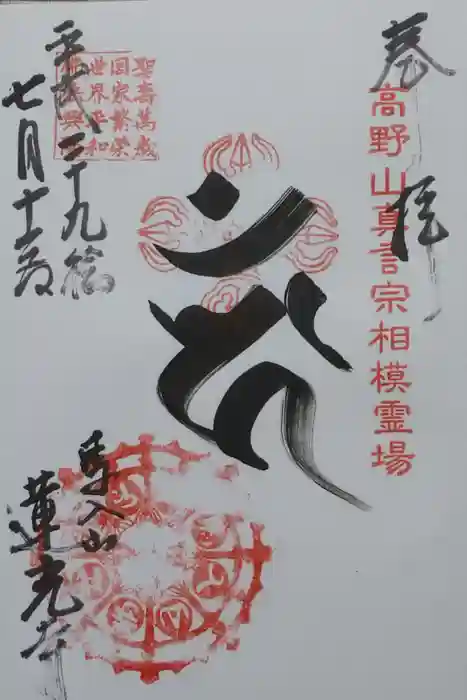 奉拝
高野山真言宗相模霊場
聖寿萬歳
国家繁栄
世界平和
平成二十九
七月十
馬入山
蓮光寺